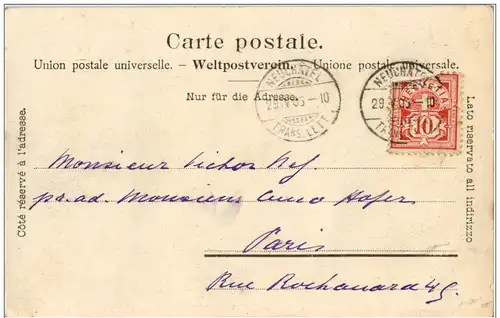 Carte postale.
Union postale universelle. – Weltpostverein. – Unione postale universale.
Nur für die Adresse.
NEUCHÂTEL
29. 05 – 10
TRANS. LETT.
NEUCHÂTEL
29. 05 – 10
TRANS. LETT.
HELVETIA
10
Côté réservé à l'adresse.
Lato riservato all indirizzo
Monsieur Victor Nef.
pr. ad. Monsieur Cuno Hofer
Paris
Rue Rochouard 45